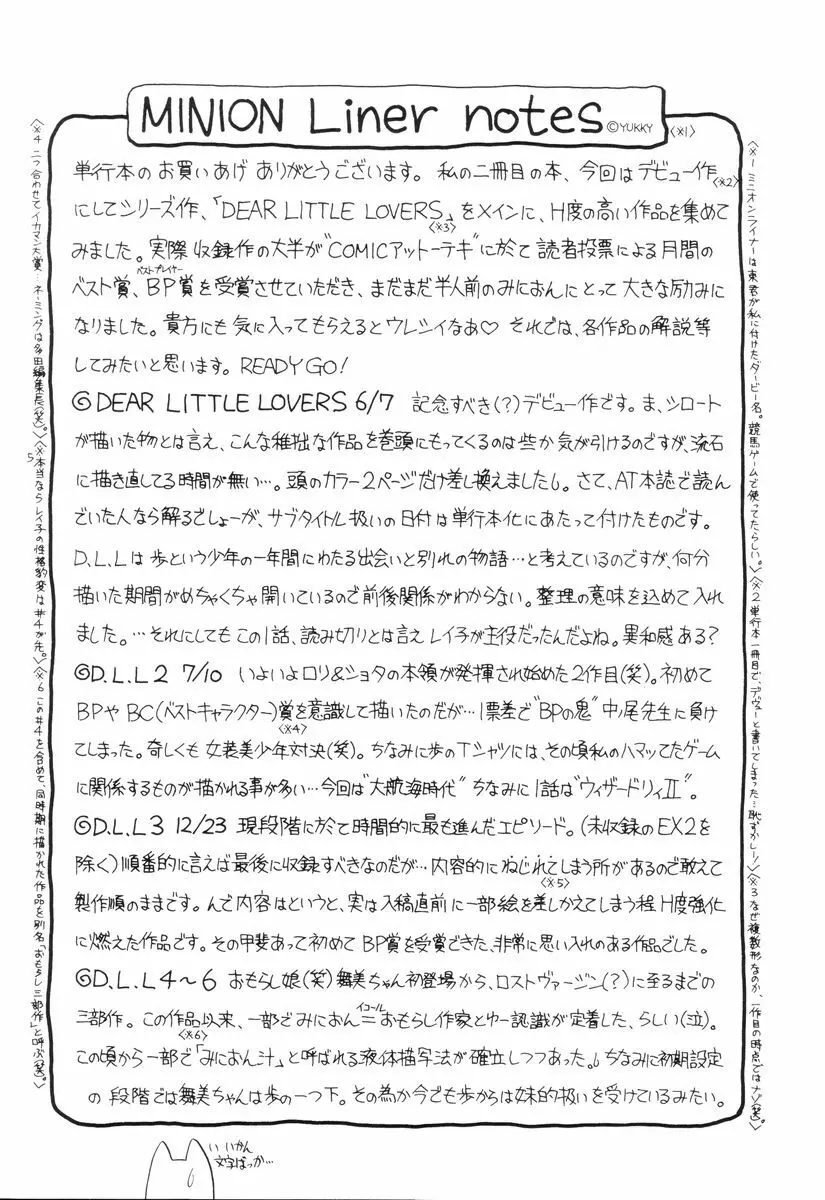 MINION Liner notes ©YUKKY 〈※1〉
単行本のお買いあげ ありがとうございます。私の二冊目の本、今回はデビュー作〈※2〉
にしてシリーズ作、「DEAR LITTLE LOVERS」をメインに、H度の高い作品を集めて
〈※3〉
みました。実際 収録作の大半が"COMICアットーテキ"に於て 読者投票による月間の
ベストプレイヤー
ベスト賞、BP賞を受賞させていただき、まだまだ半人前のみにおんにとって 大きな励みに
なりました。貴方にも 気に入ってもらえるとウレシイなあ♡ それでは、各作品の解説等
してみたいと思います。READY GO!
◎DEAR LITTLE LOVERS 6/7 記念すべき(?)デビュー作です。ま、シロート
が描いた物とは言え、こんな稚拙な作品を巻頭にもってくるのは些か気が引けるのですが、流石
に描き直してる時間が無い…。頭のカラー2ページだけ差し換えました。さて、AT本誌で読ん
でいた人なら解るでしょーが、サブタイトル扱いの日付は単行本化にあたって付けたものです。
D.L.Lは 歩という少年の一年間にわたる出会いと別れの物語…と考えているのですが、何分
描いた期間がめちゃくちゃ開いているので前後関係がわからない。整理の意味を込めて入れ
ました。…それにしても この1話、読み切りとは言え レイ子が主役だったんだよね。異和感ある?
◎D.L.L2 7/10 いよいよロリ&ショタの本領が発揮され始めた2作目(笑)。初めて
BPや BC(ベストキャラクター)賞を意識して描いたのだが…1票差で"BPの鬼"中ノ尾先生に負け
〈※4〉
てしまった。奇しくも 女装美少年対決(笑)。ちなみに歩のTシャツには、その頃私のハマッてたゲーム
に関係するものが描かれる事が多い…今回は"大航海時代" ちなみに 1話は"ウィザードリィII"。
◎D.L.L3 12/23 現段階に於て時間的に最も進んだエピソード。(未収録のEX2を
除く)順番的に言えば最後に収録すべきなのだが…内容的にねじれてしまう所があるので敢えて
〈※5〉
製作順のままです。んで内容はというと、実は入稿直前に一部絵を差しかえてしまう程 H度強化
に燃えた作品です。その甲斐あって初めて BP賞を受賞できた、非常に思い入れのある作品でした。
◎D.L.L4〜6 おもらし娘(笑)舞美ちゃん初登場から、ロストヴァージン(?)に至るまでの
三部作。この作品以来、一部でみにおん=おもらし作家とゆー認識が定着した、らしい(泣)。
イコール
〈※6〉
この頃から一部で「みにおん汁」と呼ばれる液体描写法が確立しつつあった。ちなみに初期設定
の 段階では舞美ちゃんは歩の一つ下。その為か今でも歩からは妹的扱いを受けているみたい。
〈※1 ミニオンライナーは東君が私に付けたダービー名。競馬ゲームで使ってたらしい。〉〈※2 単行本一冊目で、デヴューと書いてしまった…恥ずかしー!〉〈※3 なぜ複数形なのか、一作目の時点ではナゾ(笑)。〉
〈※4 二つ合わせてイカマン大賞…ネーミングは多田編集長(笑)。〉〈※5 本当ならレイ子の性格豹変は#4が先。〉〈※6 この#4を含めて、同時期に描かれた作品を別名「おもらし三部作」と呼ぶ(笑)。〉
いいかん
文字ばっか…